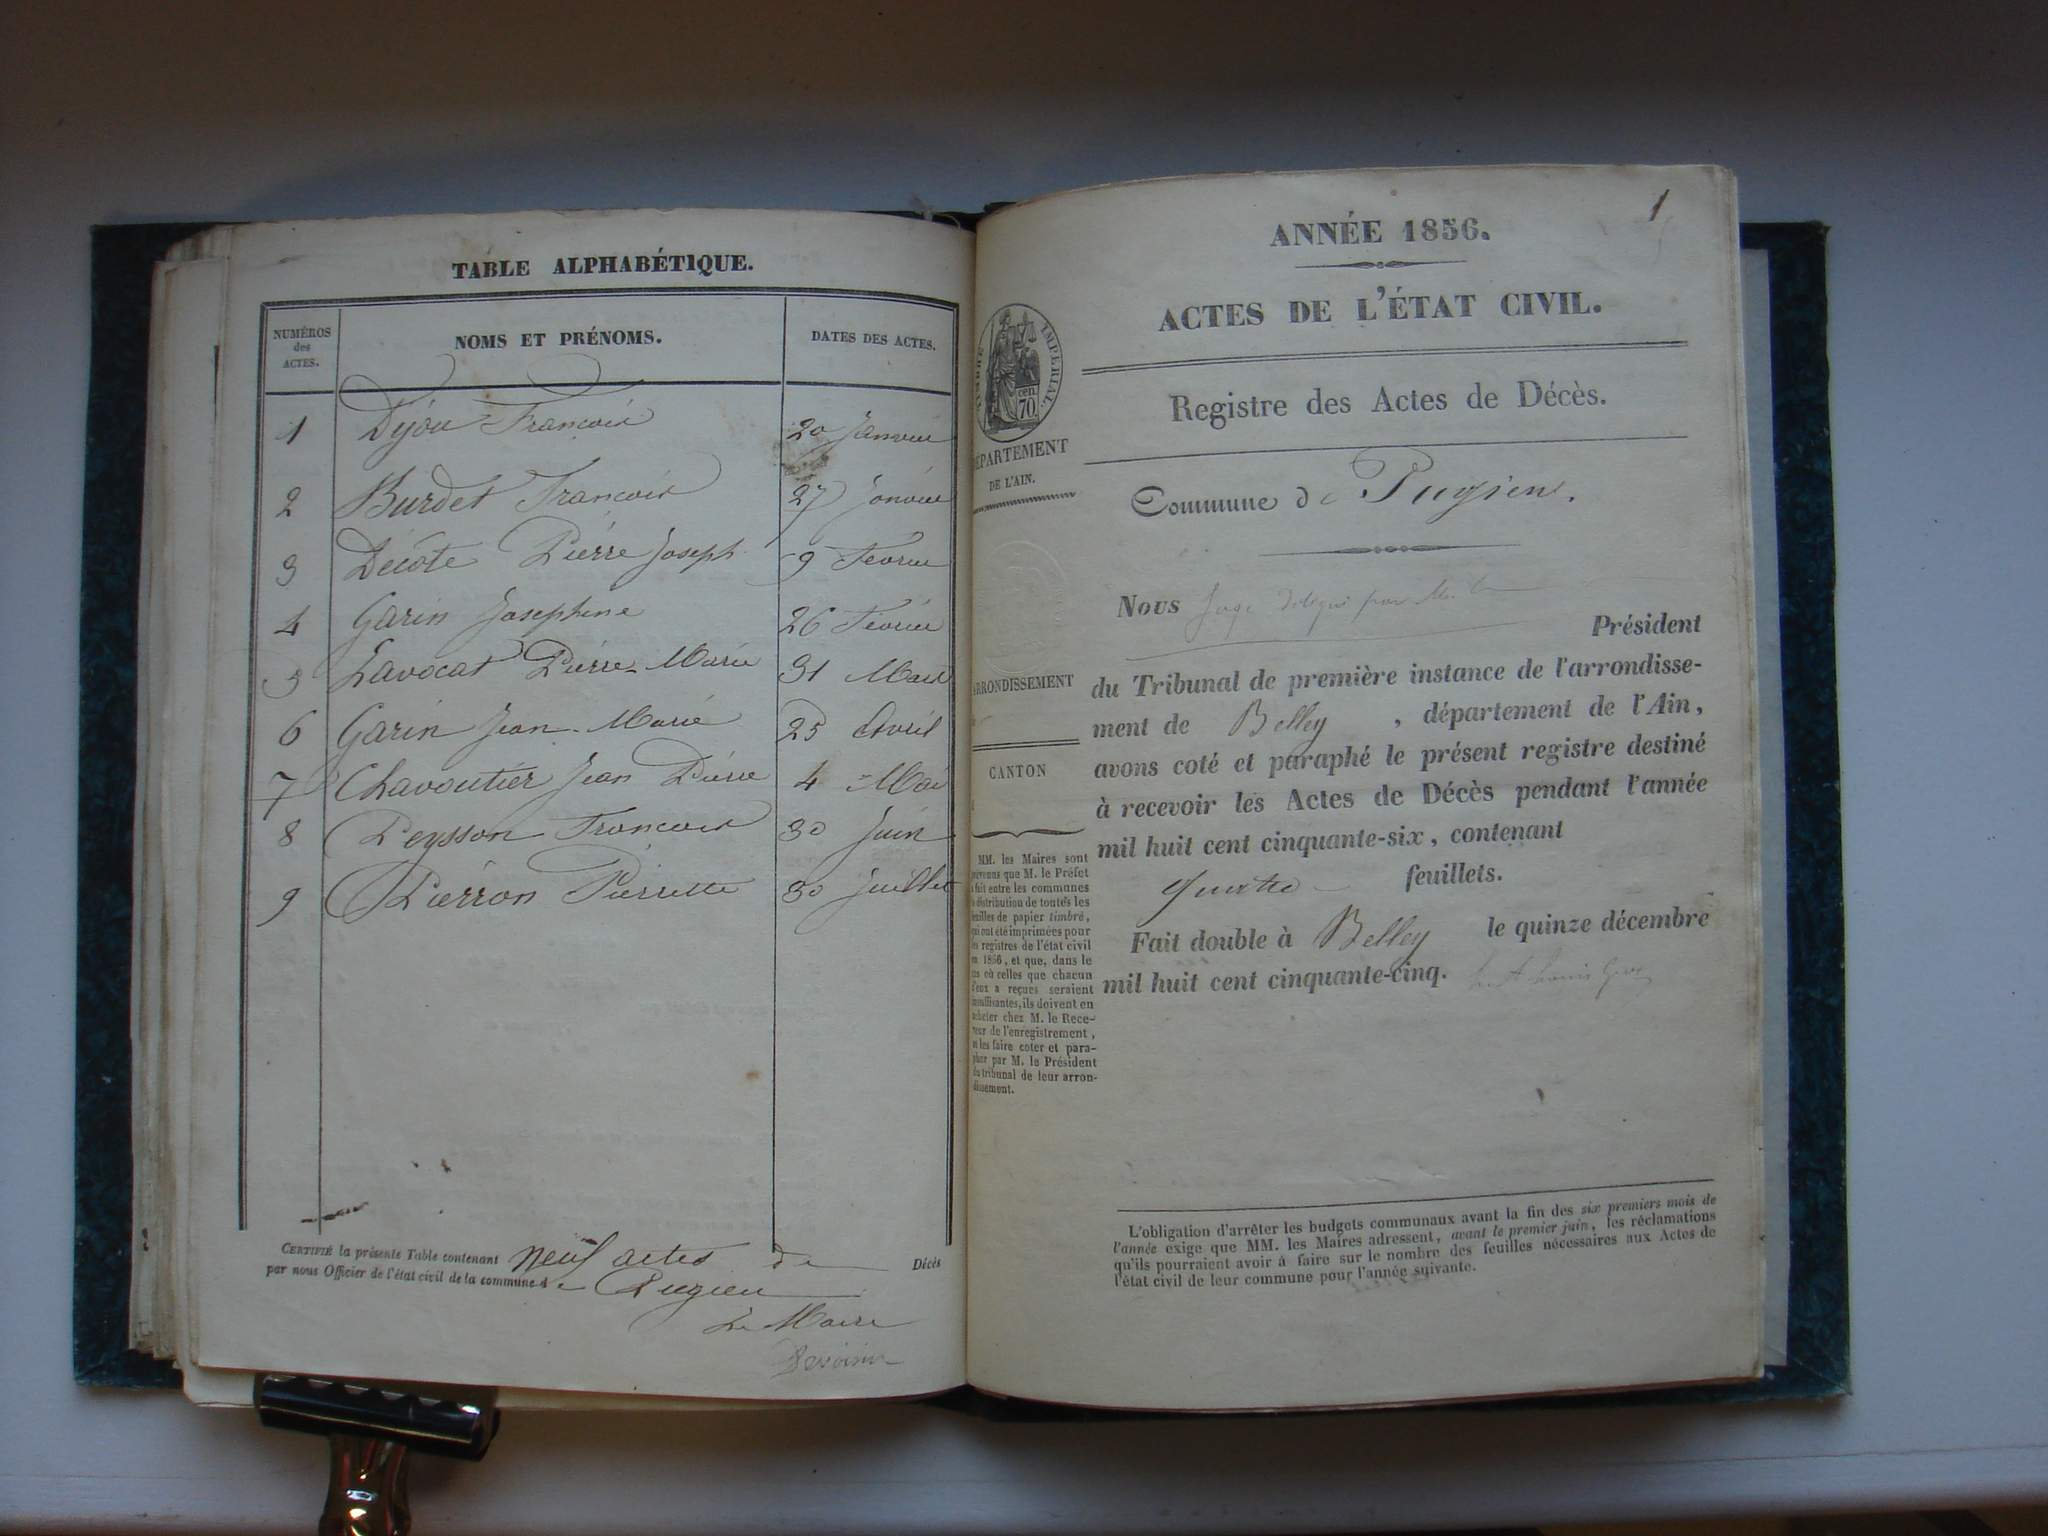 TABLE ALPHABÉTIQUE.
NUMÉROS
des
ACTES.
NOMS ET PRÉNOMS.
DATES DES ACTES.
1 Dijou François 20 Janvier
2 Burdet François 27 Janvier
3 Décôte Pierre Joseph 9 Février
4 Garin Josephine 26 Février
5 Lavocat Pierre-Marie 31 Mars
6 Garin Jean-Marie 25 Avril
7 Chavoutier Jean Pierre 4 Mai
8 Peysson François 30 Juin
9 Pierron Pierrette 30 Juillet
CERTIFIÉ la présente Table contenant neuf actes de Décès
par nous Officier de l'état civil de la commune de Pugieu
Le Maire
1
ANNÉE 1856.
ACTES DE L'ÉTAT CIVIL.
Registre des Actes de Décès.
Commune de Pugieu.
TIMBRE IMPÉRIAL.
cen
70
DÉPARTEMENT
DE L'AIN.
ARRONDISSEMENT
CANTON
MM. les Maires sont
prévenus que M. le Préfet
a fait entre les communes
la distribution de toutes les
feuilles de papier timbré,
qui ont été imprimées pour
les registres de l'état civil
en 1856, et que, dans le
cas où celles que chacun
d'eux a reçues seraient
insuffisantes, ils doivent en
acheter chez M. le Rece-
veur de l'enregistrement,
et les faire coter et para-
pher par M. le Président
du tribunal de leur arron-
dissement.
Nous Juge délégué par M. le
Président
du Tribunal de première instance de l'arrondisse-
ment de Belley, département de l'Ain,
avons coté et paraphé le présent registre destiné
à recevoir les Actes de Décès pendant l'année
mil huit cent cinquante-six, contenant
quatre feuillets.
Fait double à Belley le quinze décembre
mil huit cent cinquante-cinq.
L'obligation d'arrêter les budgets communaux avant la fin des six premiers mois de
l'année exige que MM. les Maires adressent, avant le premier juin, les réclamations
qu'ils pourraient avoir à faire sur le nombre des feuilles nécessaires aux Actes de
l'état civil de leur commune pour l'année suivante.